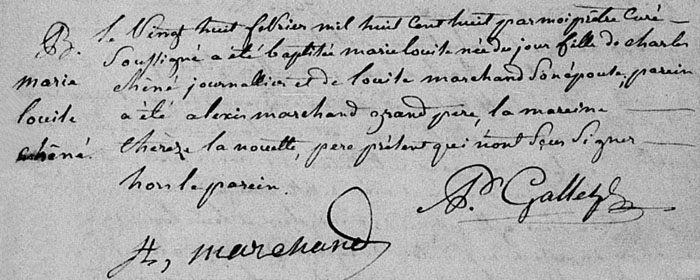 B.
marie
louise
chêné.
le vingt huit fevrier mil huit cent huit par moi prêtre curé
soussigné a été baptisée marie louise née du jour fille de charles
chêné journallier et de louise marchand son épouse, parein
a été alexis marchand grand pere, la mareine
therèze la nouette, pere présent qui n'ont sçus signer
hors le parein.
Pre Gallet
A, marchand